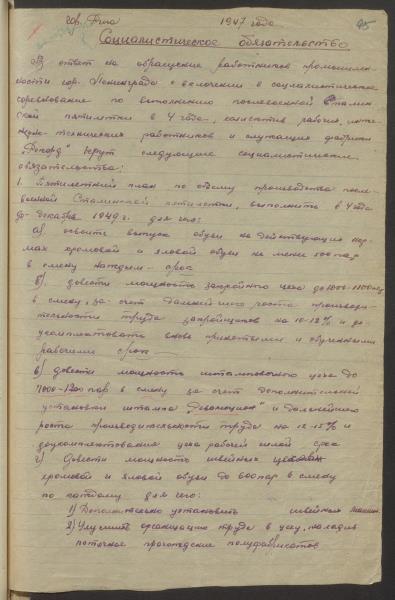 гор. Рига 1947 года
95
Социалистическое обязательство
В ответ на обращение работников промышлен-
ности гор. Ленинграда о включении в социалистическое
соревнование по выполнению послевоенной Сталин-
ской пятилетки в 4 года, коллектив рабочих, инже-
нерно-технических работников и служащих фабрики
"Рекорд" берут следующие социалистические
обязательства:
1. Пятилетний план по отделу производства после-
военной Сталинской пятилетки, выполнить в 4 года
до декабря 1949 г. для чего:
а) освоить выпуск обуви на действующих фор-
мах хромовой и яловой обуви не менее 500 пар
в смену каждым срок
б) довести мощность закройного цеха до 1000-1200 пар
в смену, за счет дальнейшего роста производи-
тельности труда закройщиков на 10-12% и до-
укомплектовать вновь принятыми и обученными
рабочими срок
в) довести мощность штамповочного цеха до
1000-1200 пар в смену за счет дополнительной
установки штампа "Революцион" и дальнейшего
роста производительности труда на 12-15% и
доукомплектования цеха рабочей силой срок
г) Довести мощность швейных цехов
хромовой и яловой обуви до 600 пар в смену
по каждому для чего:
1) Дополнительно установить швейных машин.
2) Улучшить организацию труда в цеху, наладив
поточное прохождение полуфабрикатов